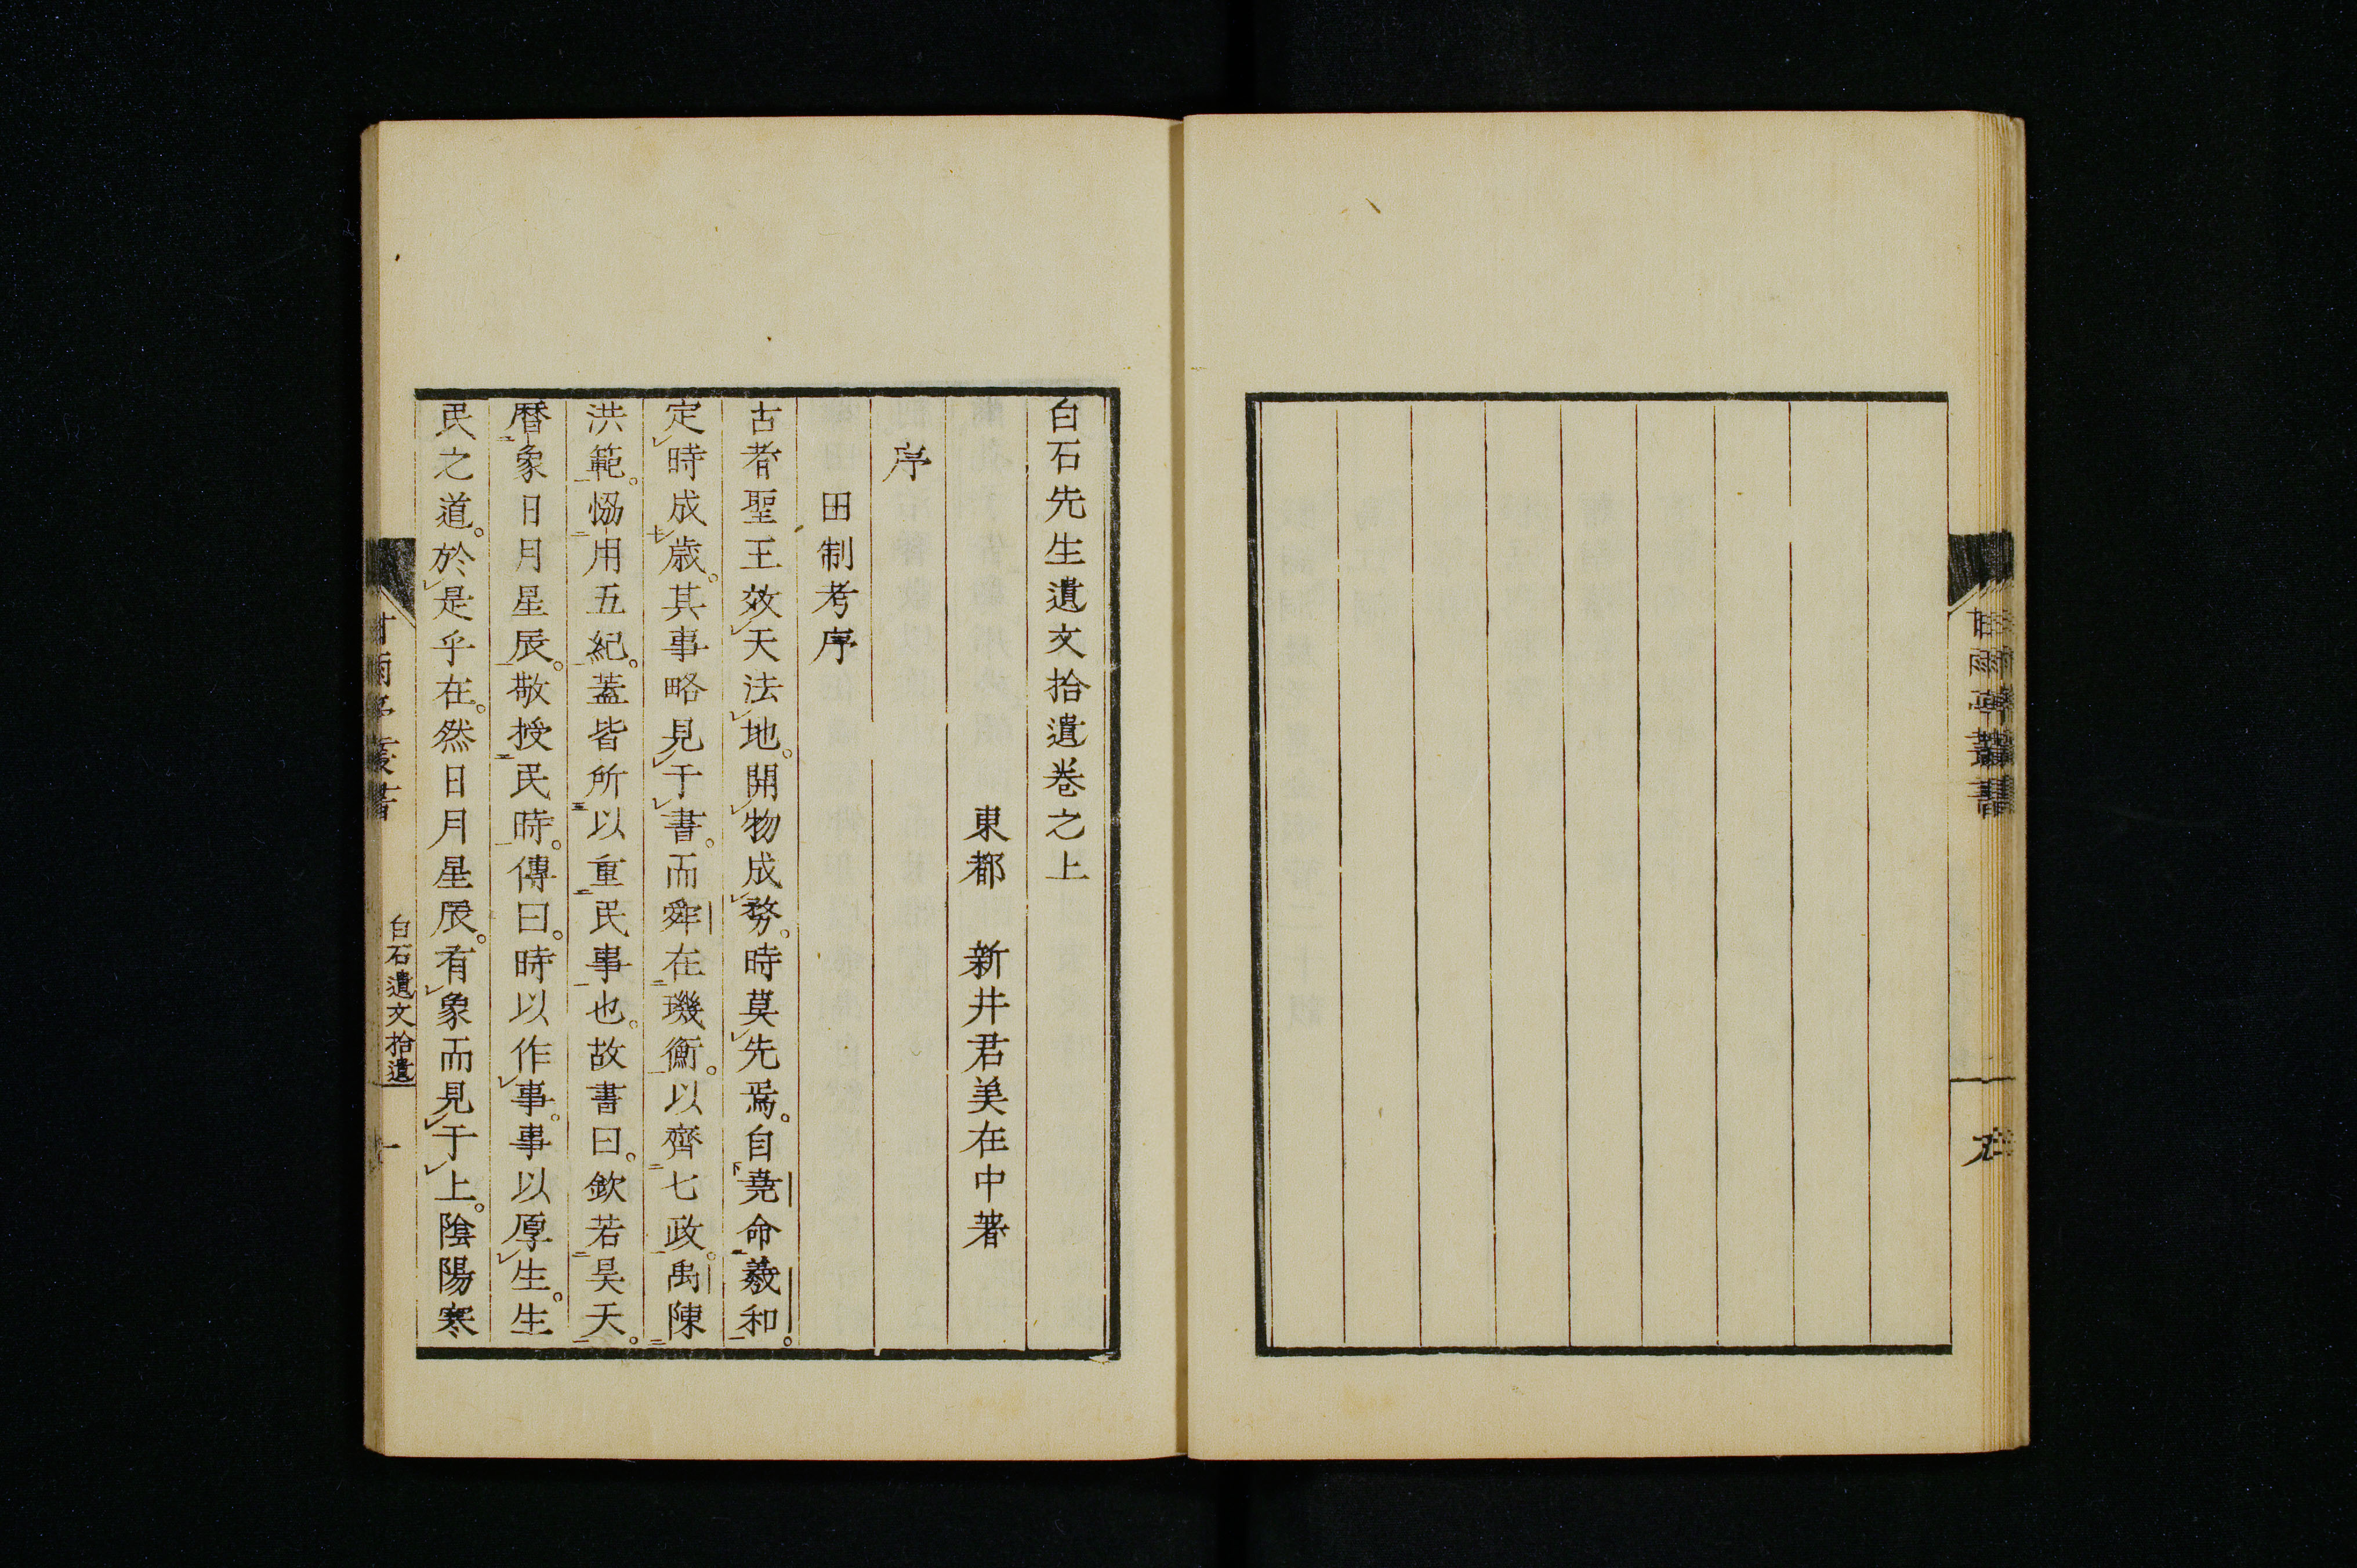 甘雨亭叢書
白石先生遺文拾遺卷之上
東都 新井君美在中著
序
田制考序
古者聖王效天法地。開物成務。時莫先焉。自堯命羲和。
定時成歳。其事略見于書。而舜在璣衡。以齊七政。禹陳
洪範。恊用五紀。蓋皆所以重民事也。故書曰。欽若昊天。
曆象日月星辰。敬授民時。傳曰。時以作事。事以厚生。生
民之道。於是乎在。然日月星辰。有象而見于上。陰陽寒
甘雨亭叢書 白石遺文拾遺 一